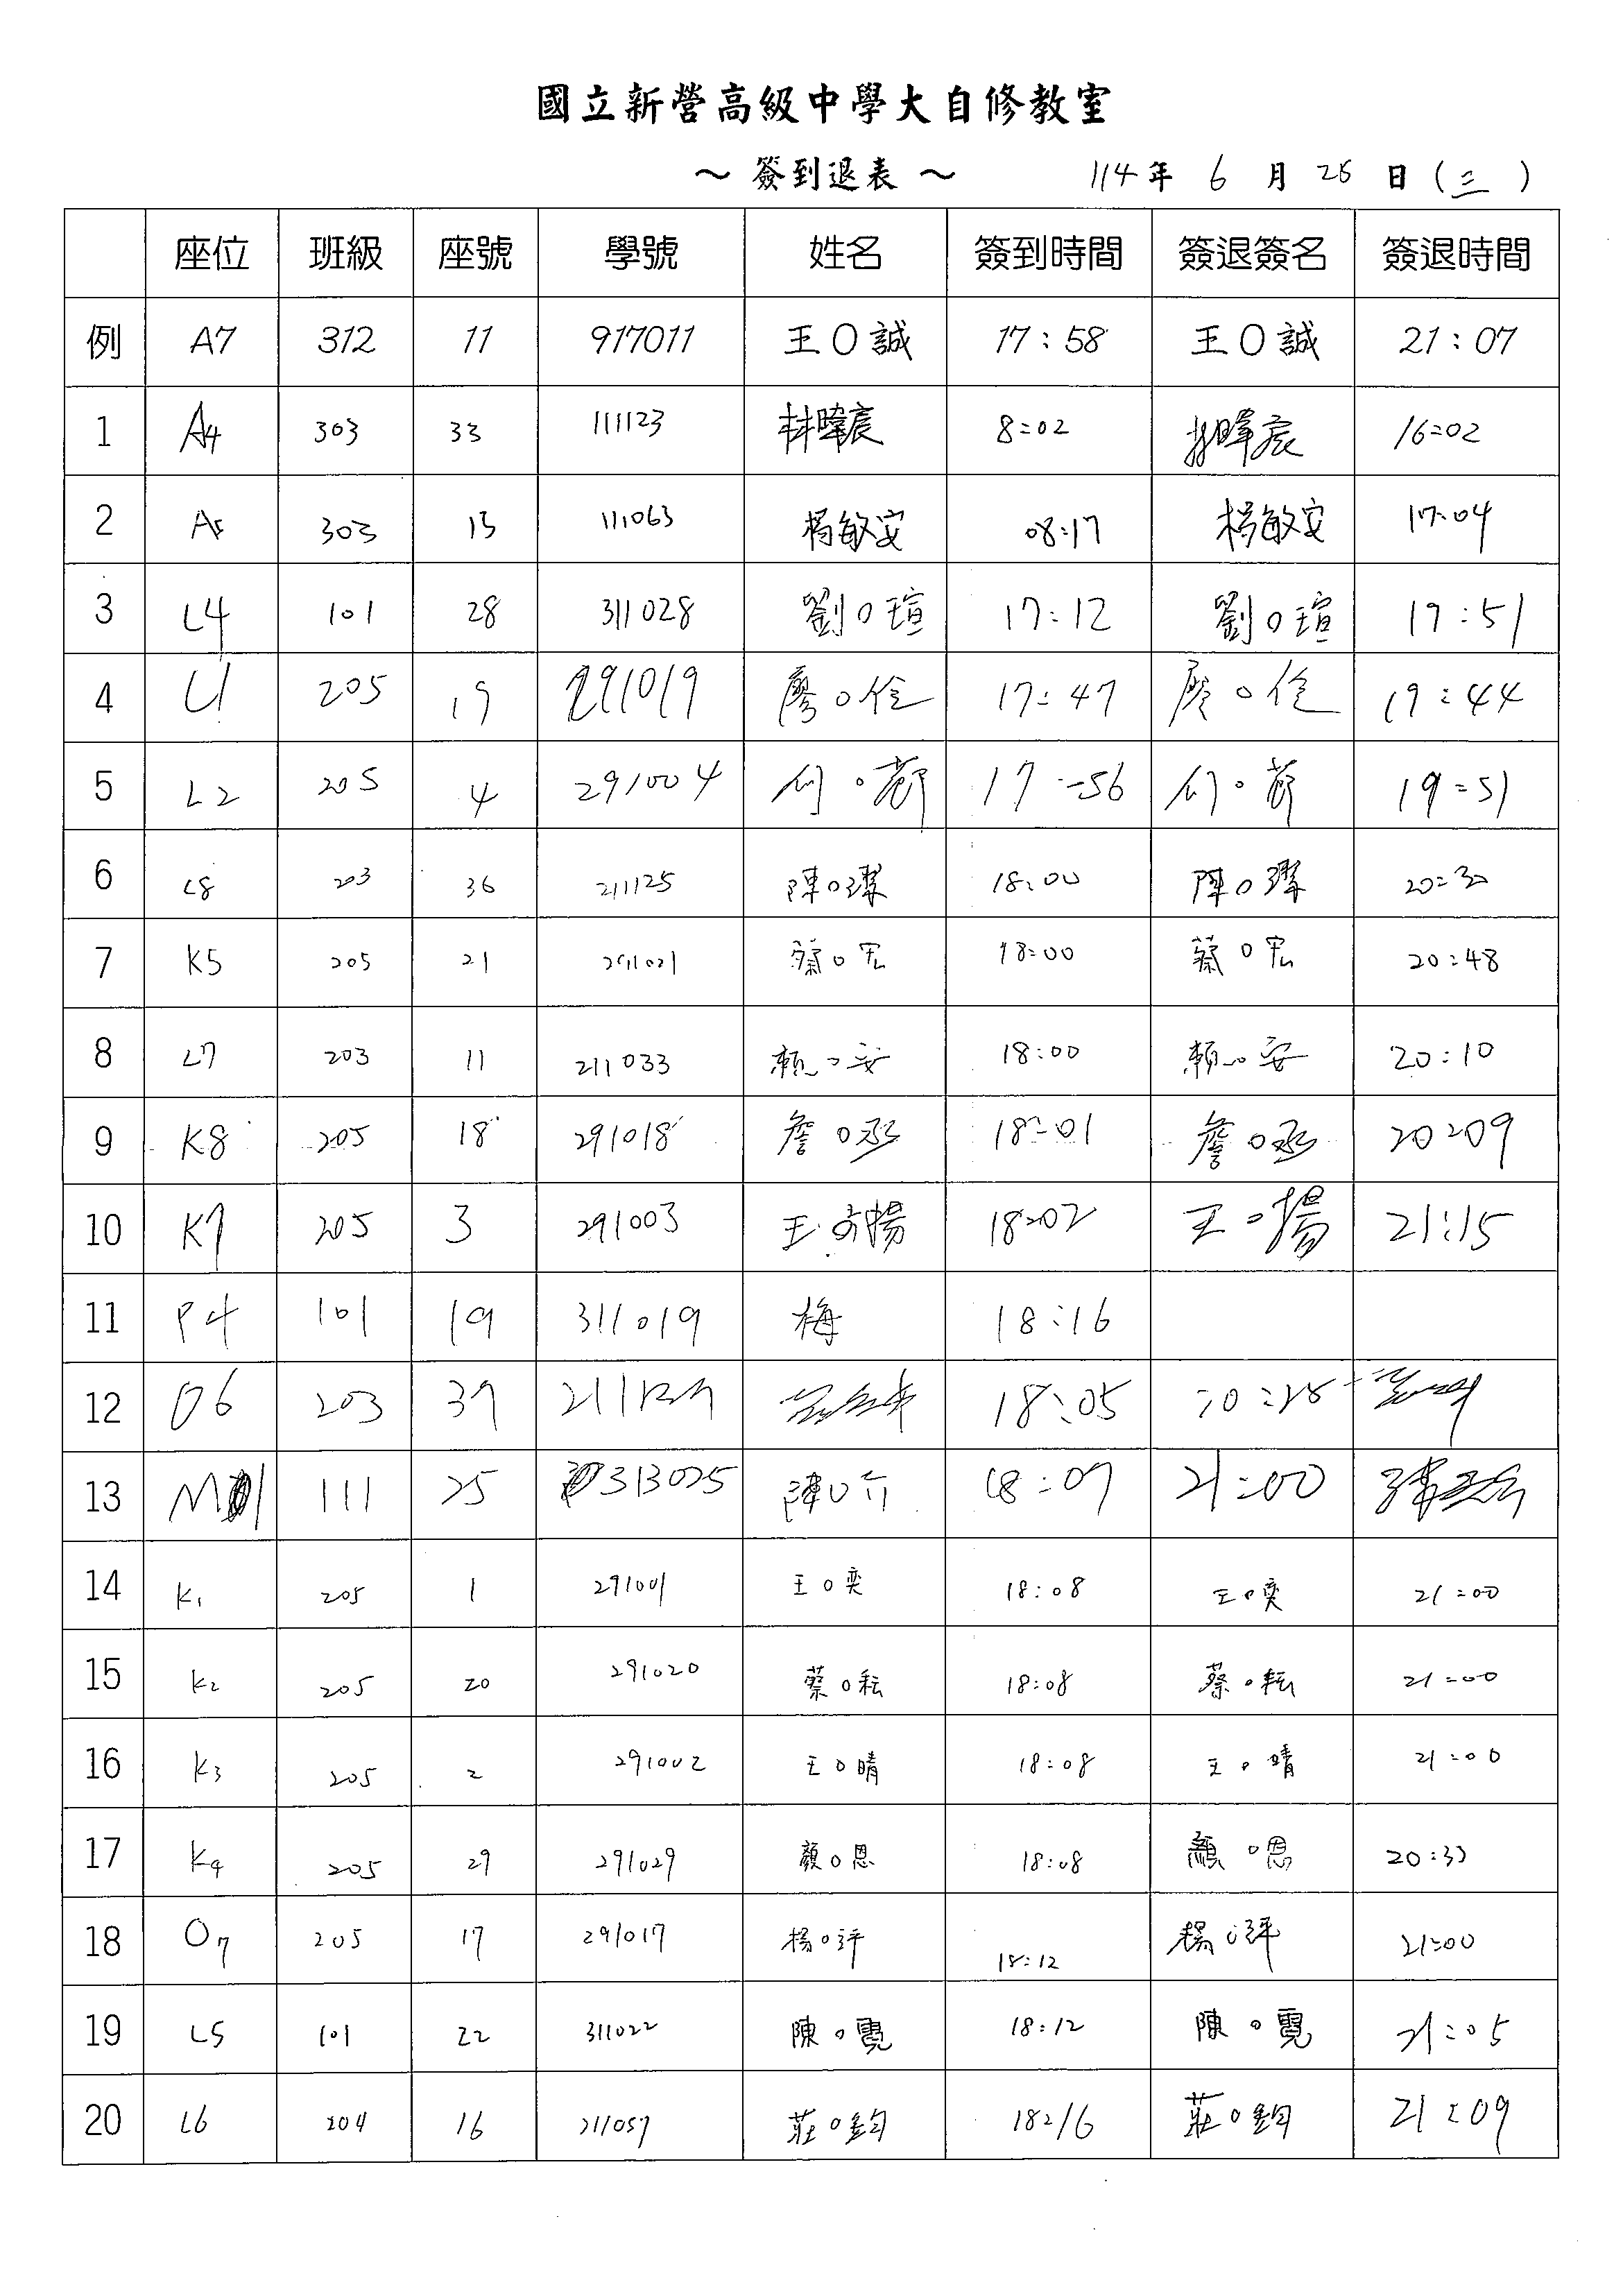 國立新營高級中學大自修教室
～ 簽到退表 ～ 114年 6 月 25 日 (三)
座位 班級 座號 學號 姓名 簽到時間 簽退簽名 簽退時間
例 A7 312 11 917011 王O誠 17:58 王O誠 21:07
1 A4 303 33 111123 林暐宸 8:02 林暐宸 16:02
2 A5 303 13 111063 楊敏安 08:17 楊敏安 17:04
3 L4 101 28 311028 劉O瑄 17:12 劉O瑄 19:51
4 L1 205 19 291019 廖O佺 17:47 廖O佺 19:44
5 L2 205 4 291004 17:56 19:51
6 L8 203 36 211125 陳O璨 18:00 陳O璨 20:30
7 K5 205 21 291021 蔡O宏 18:00 蔡O宏 20:48
8 L7 203 11 211033 賴O安 18:00 賴O安 20:10
9 K8 205 18 291018 詹O丞 18:01 詹O丞 20:09
10 K7 205 3 291003 王 揚 18:02 王O揚 21:15
11 P4 101 19 311019 梅 18:16
12 O6 203 39 18:05 20:28
13 M1 111 25 313025 陳O介 18:07 21:00
14 K1 205 1 291001 王O奕 18:08 王O奕 21:00
15 K2 205 20 291020 蔡O耘 18:08 蔡O耘 21:00
16 K3 205 2 291002 王O晴 18:08 王O晴 21:00
17 K4 205 29 291029 顏O恩 18:08 顏O恩 20:33
18 O7 205 17 291017 楊O評 18:12 楊O評 21:00
19 L5 101 22 311022 陳O霓 18:12 陳O霓 21:05
20 L6 204 16 211057 莊O鈞 18:16 莊O鈞 21:09